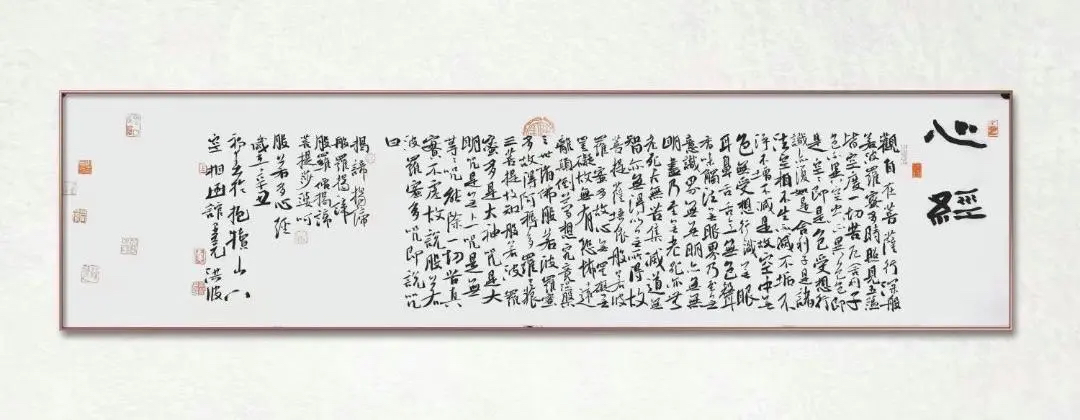 心經
觀自在菩薩行深般
若波羅蜜多時照見五蘊
皆空度一切苦厄舍利子
色不異空空不異色色即
是空空即是色受想行
識亦復如是舍利子是諸
法空相不生不滅不垢不
淨不增不減是故空中無
色無受想行識無眼
耳鼻舌身意無色聲
香味觸法無眼界乃至無
意識界無無明亦無無
明盡乃至無老死亦無
老死盡無苦集滅道無
智亦無得以無所得故
菩提薩埵依般若波
羅蜜多故心無罣礙無
罣礙故無有恐怖遠
離顛倒夢想究竟涅槃
三世諸佛般若波羅蜜
多故得阿耨多羅三藐
三菩提故知般若波羅
蜜多是大神咒是大
明咒是無上咒是無
等等咒能除一切苦真
實不虛故說般若
波羅蜜多咒即說咒
曰
揭諦揭諦
般羅揭諦
般羅僧揭諦
菩提莎婆呵
般若多心經
歲辛丑
於抱犢山
空相 洪波